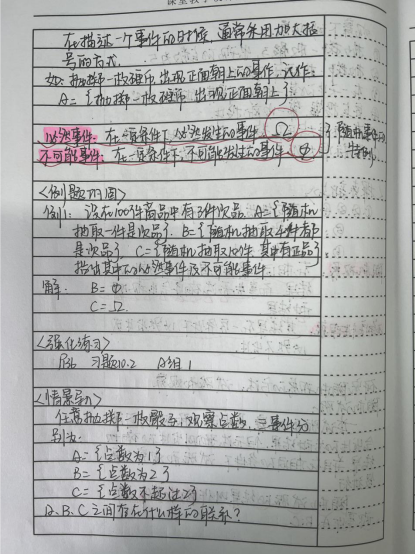 在描述一个事件的时候,通常采用加大括
号的方式.
如:抛掷一枚硬币,出现正面朝上的事件,记作:
A={抛掷一枚硬币,出现正面朝上}
必然事件:在一定条件下,必然发生的事件. Ω
不可能事件:在一定条件下,不可能发生的事件. Φ
}随机事件的
特例.
<例题巩固>
例1:设在100件商品中有3件次品. A={随机
抽取一件是次品} B={随机抽取4件都
是次品} C={随机抽取10件 其中有正品}
指出其中的必然事件及不可能事件.
解: B=Φ
C=Ω.
<强化练习>
P86 习题10.2 A组1
<情景导入>
任意抛掷一枚骰子,观察点数,三事件分
别为:
A={点数为1}
B={点数为2}
C={点数不超过2}
A、B、C之间存在什么样的联系?